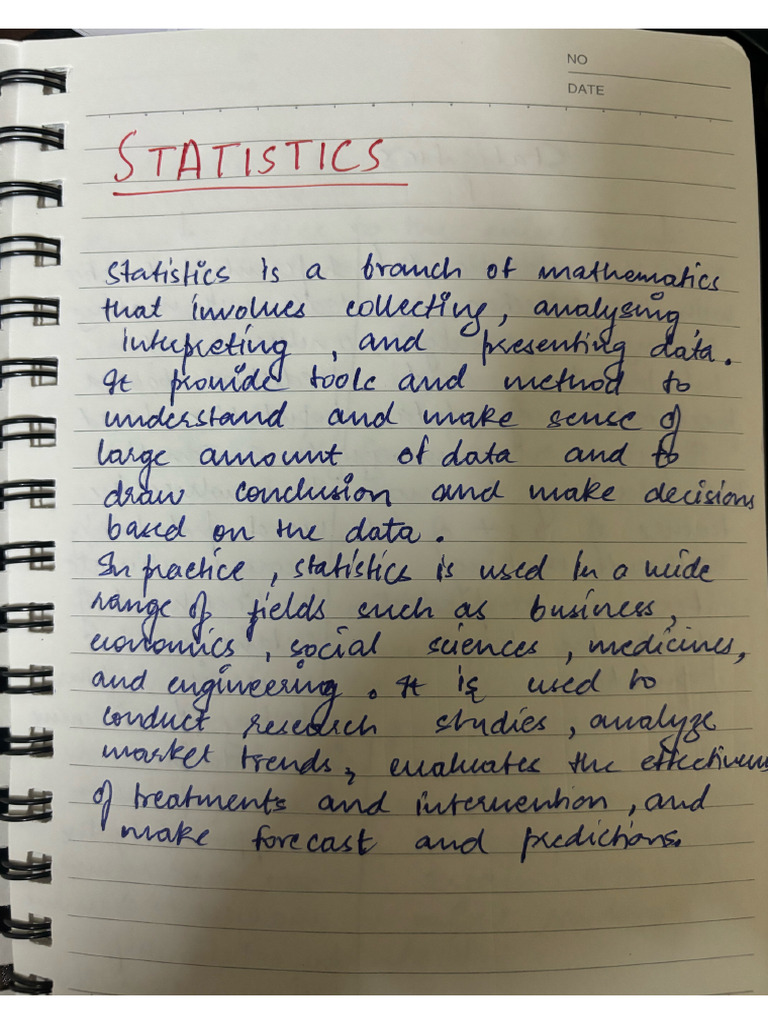 NO
DATE
STATISTICS
Statistics is a branch of mathematics
that involves collecting, analysing
interpreting, and presenting data.
It provide tools and method to
understand and make sense of
large amount of data and to
draw conclusion and make decisions
based on the data.
In practice, statistics is used in a wide
range of fields such as business,
economics, social sciences, medicines,
and engineering. It is used to
conduct research studies, analyze
market trends, evaluates the effectiveness
of treatments and intervention, and
make forecast and predictions.